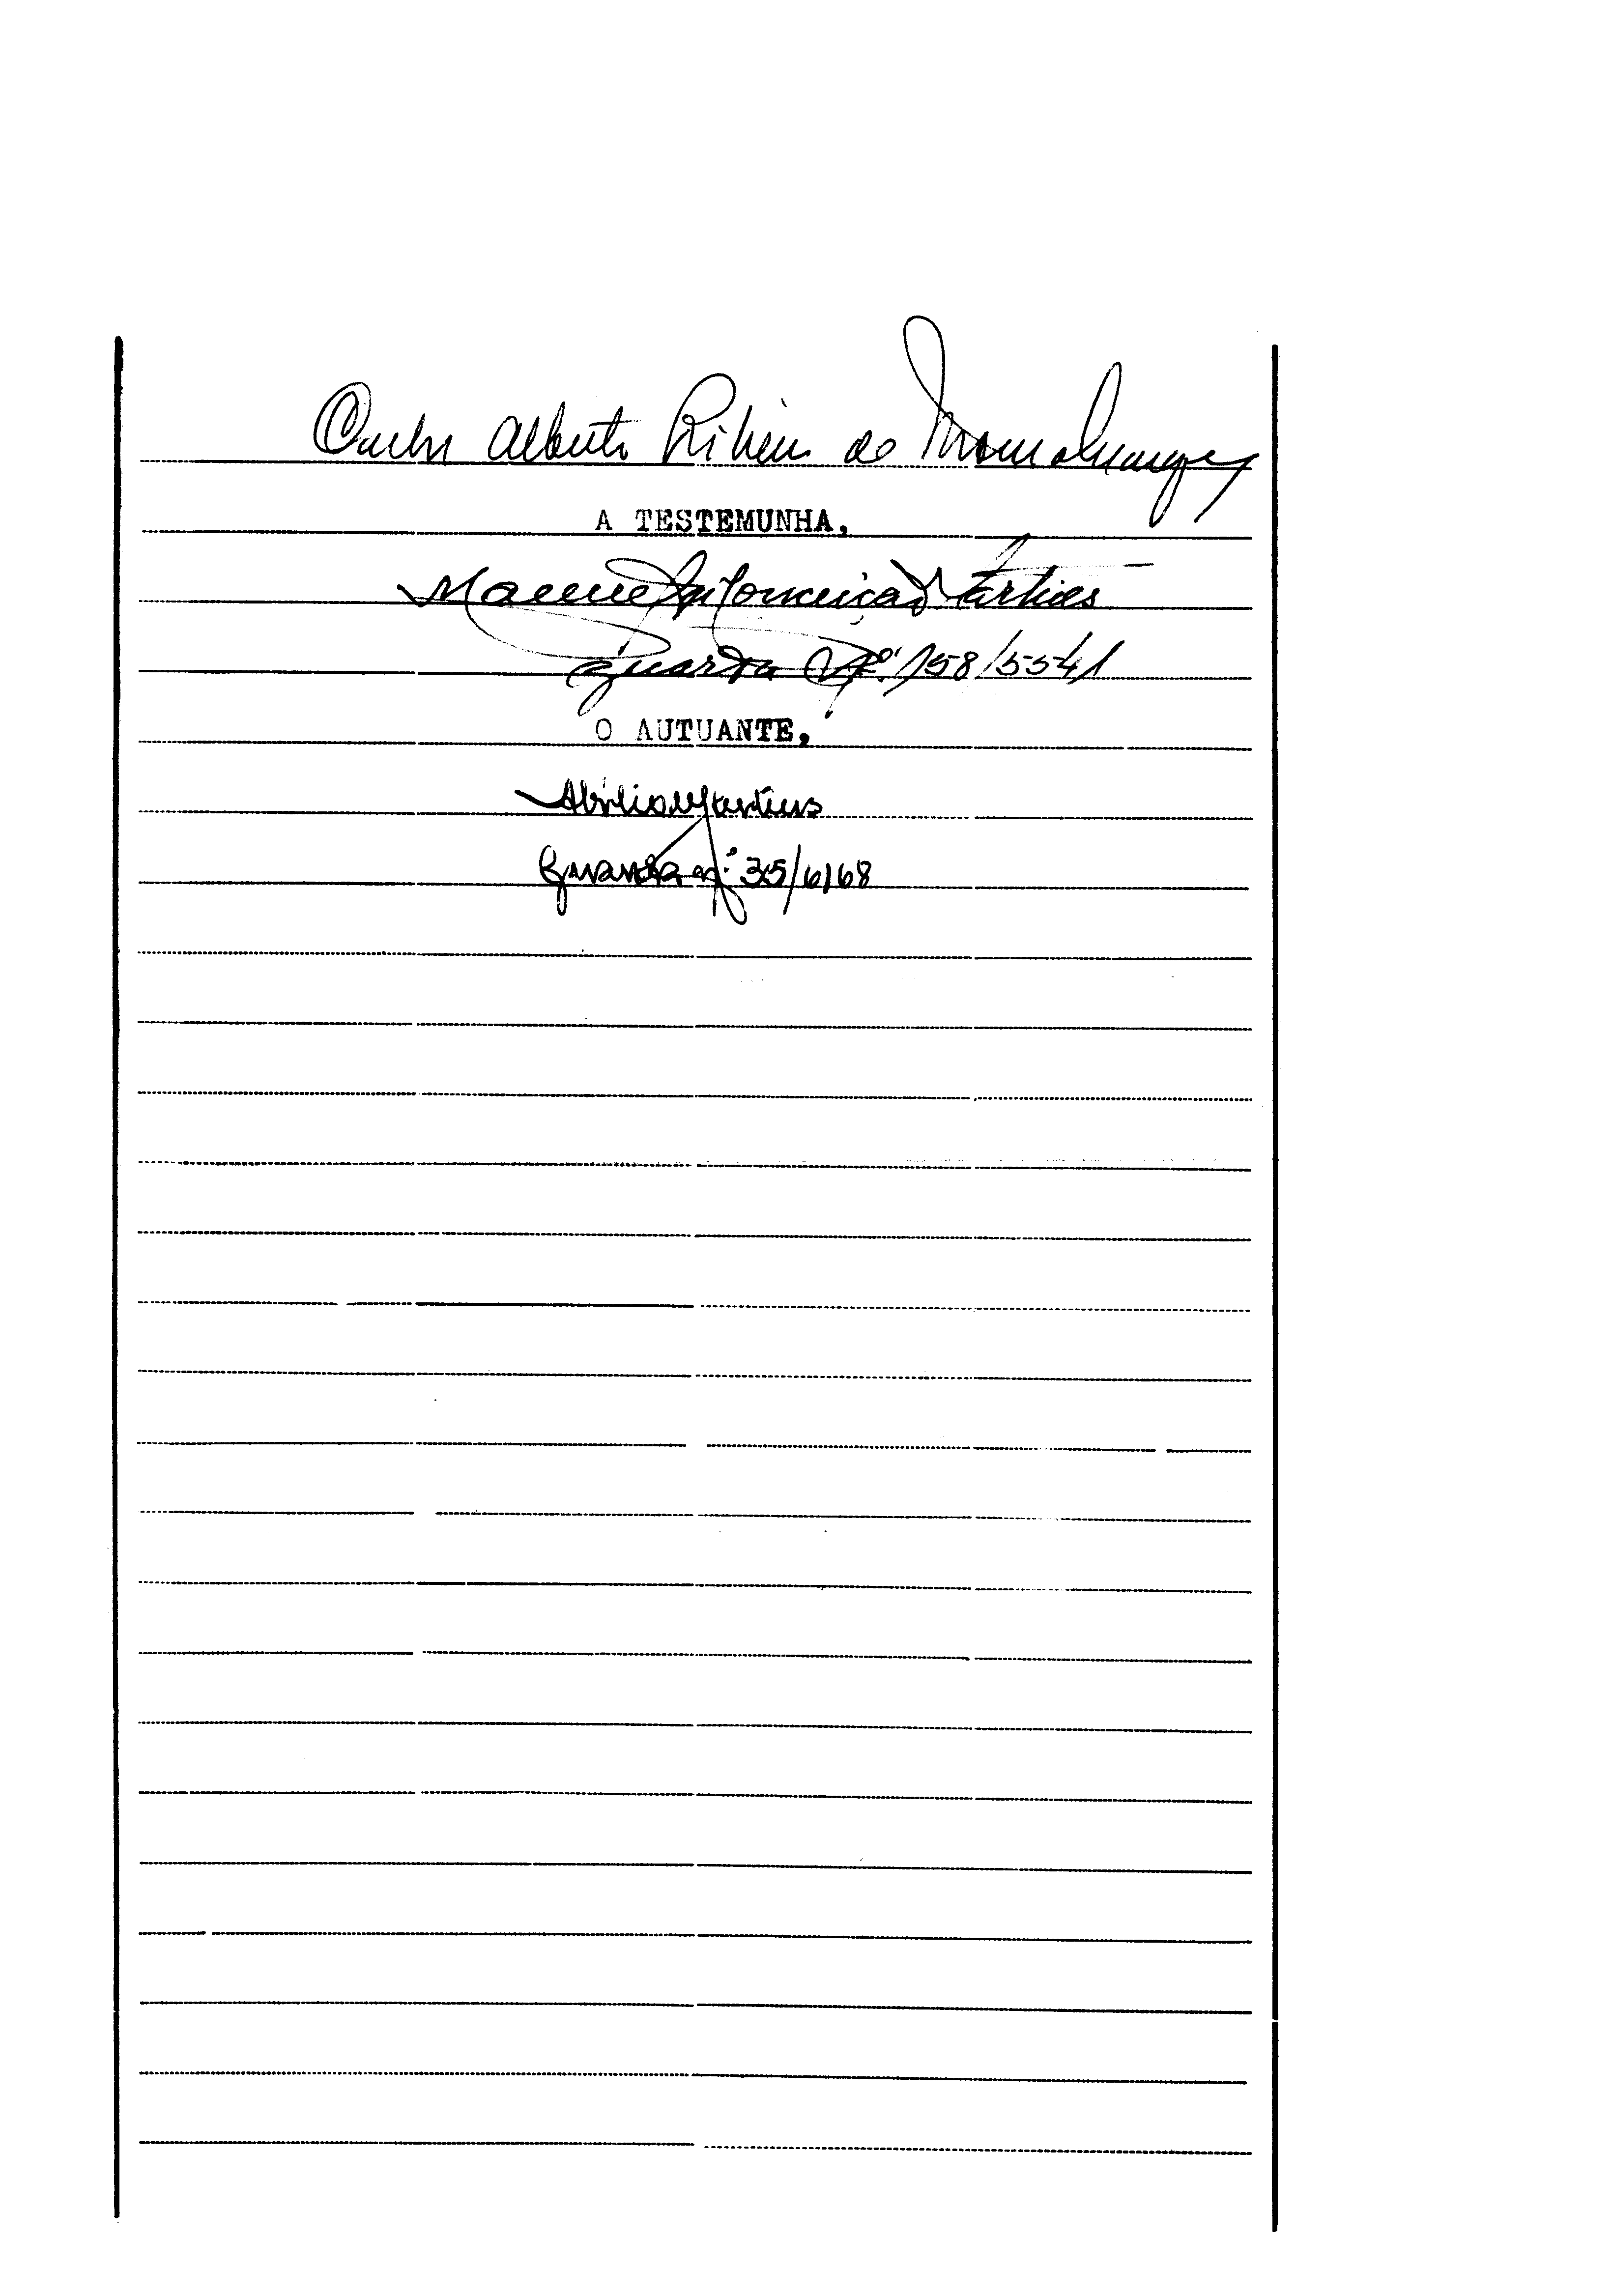 Carlos Alberto Ribeiro de
A TESTEMUNHA,
Manuel da Conceição
Guarda Nº. 158/5541
O AUTUANTE,
Abilio Martins
Guarda nº 35/6168